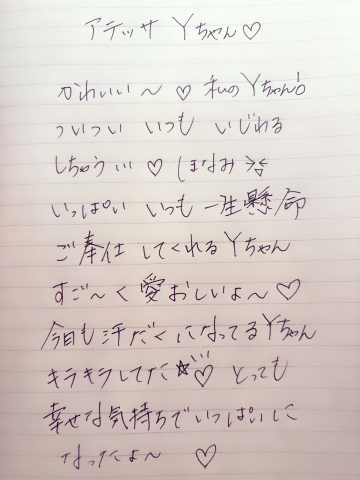 アテッサ Yちゃん♡
かわいい〜♡ 私のYちゃん!!
ついつい いつも いじわる
しちゃう…♡ ほなみ
いっぱい いつも 一生懸命
ご奉仕 してくれるYちゃん
すご〜く愛おしいよ〜♡
今日も汗だくになってるYちゃん
キラキラしてた☆♡ とっても
幸せな気持ちでいっぱいに
なったよ〜 ♡